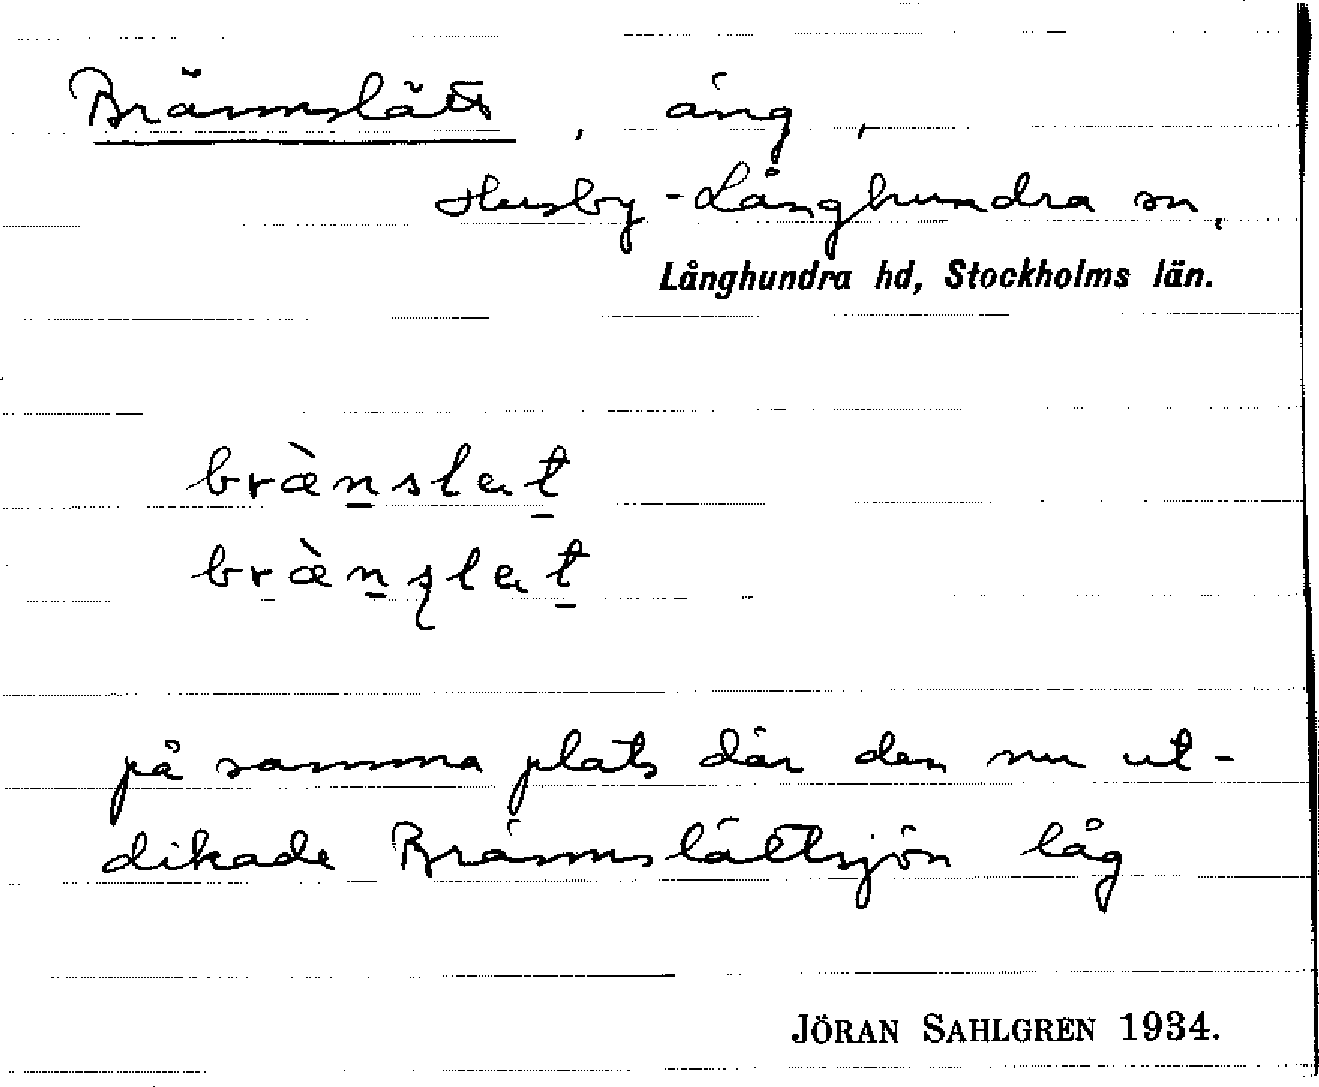 Brännslätt, äng,
Husby-Långhundra sn.
Långhundra hd, Stockholms län.
bræ̀n̠slat̠
bræ̀n̠ʂlat̠
på samma plats där den nu ut-
dikade Brännslättsjön låg
JÖRAN SAHLGREN 1934.